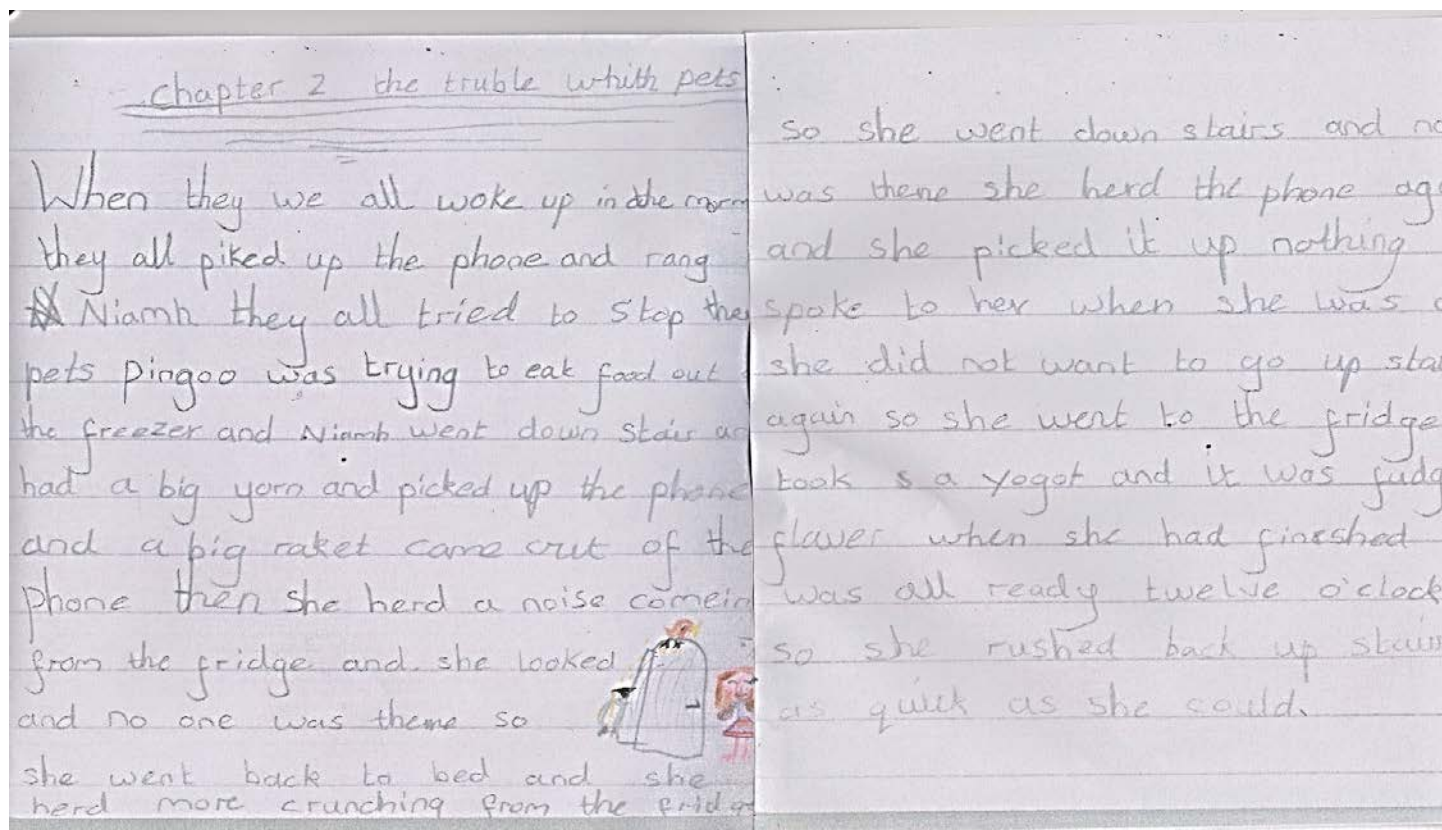 chapter 2 the truble whith pets
When they we all woke up in the morn
they all piked up the phone and rang
Niamh they all tried to stop the
pets pingoo was trying to eat food out
the freezer and Niamh went down stair an
had a big yorn and picked up the phone
and a big raket came out of the
phone then she herd a noise comein
from the fridge and she looked
and no one was theme so
she went back to bed and she
herd more crunching from the fridge
so she went down stairs and no
was thene she herd the phone ag
and she picked it up nothing
spoke to her when she was
she did not want to go up stai
again so she went to the fridge
took s a yogot and it was fudg
flaver when she had fineshed
was all ready twelve o'clock
so she rushed back up stairs
as quick as she could.